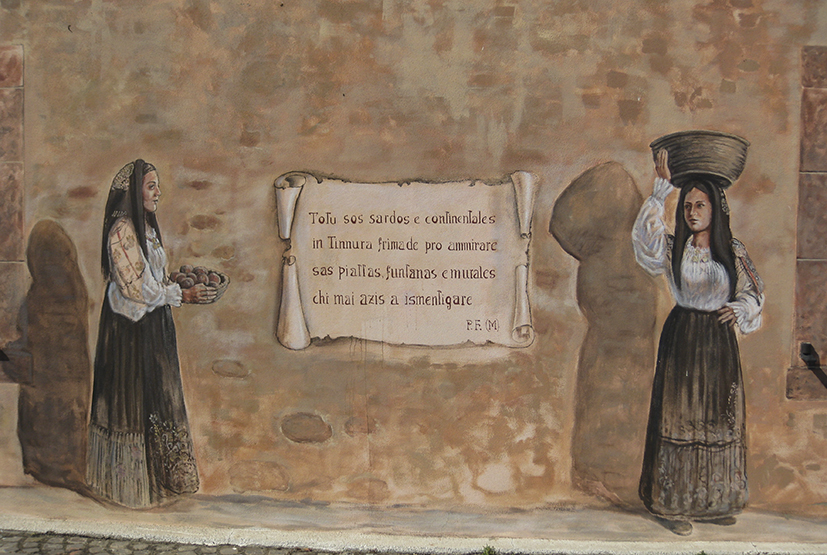 Totu sos sardos e continentales
in Tinnura frimade pro ammirare
sas piattas, funtanas e murales
chi mai azis a ismentigare
P.F. (M)